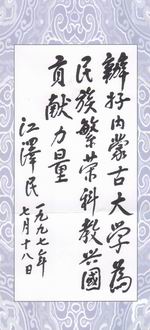 辦好内蒙古大学為
民族繁荣科教興國
貢献力量
江澤民
一九九七年
七月十八日